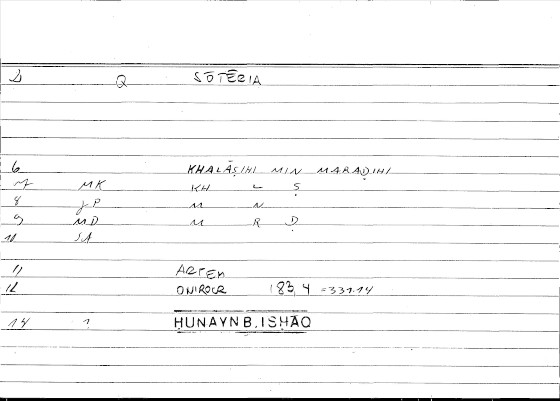 Q SŌTĒRIA
6 KHALĀṢIHI MIN MARAḌIHI
7 MK KH L Ṣ
8 JP M N
9 MD M R Ḍ
10 SA
11 ARTEM
12 ONIROCR 183, 4 = 331.14
14 1 ḤUNAYN B. ISḤĀQ